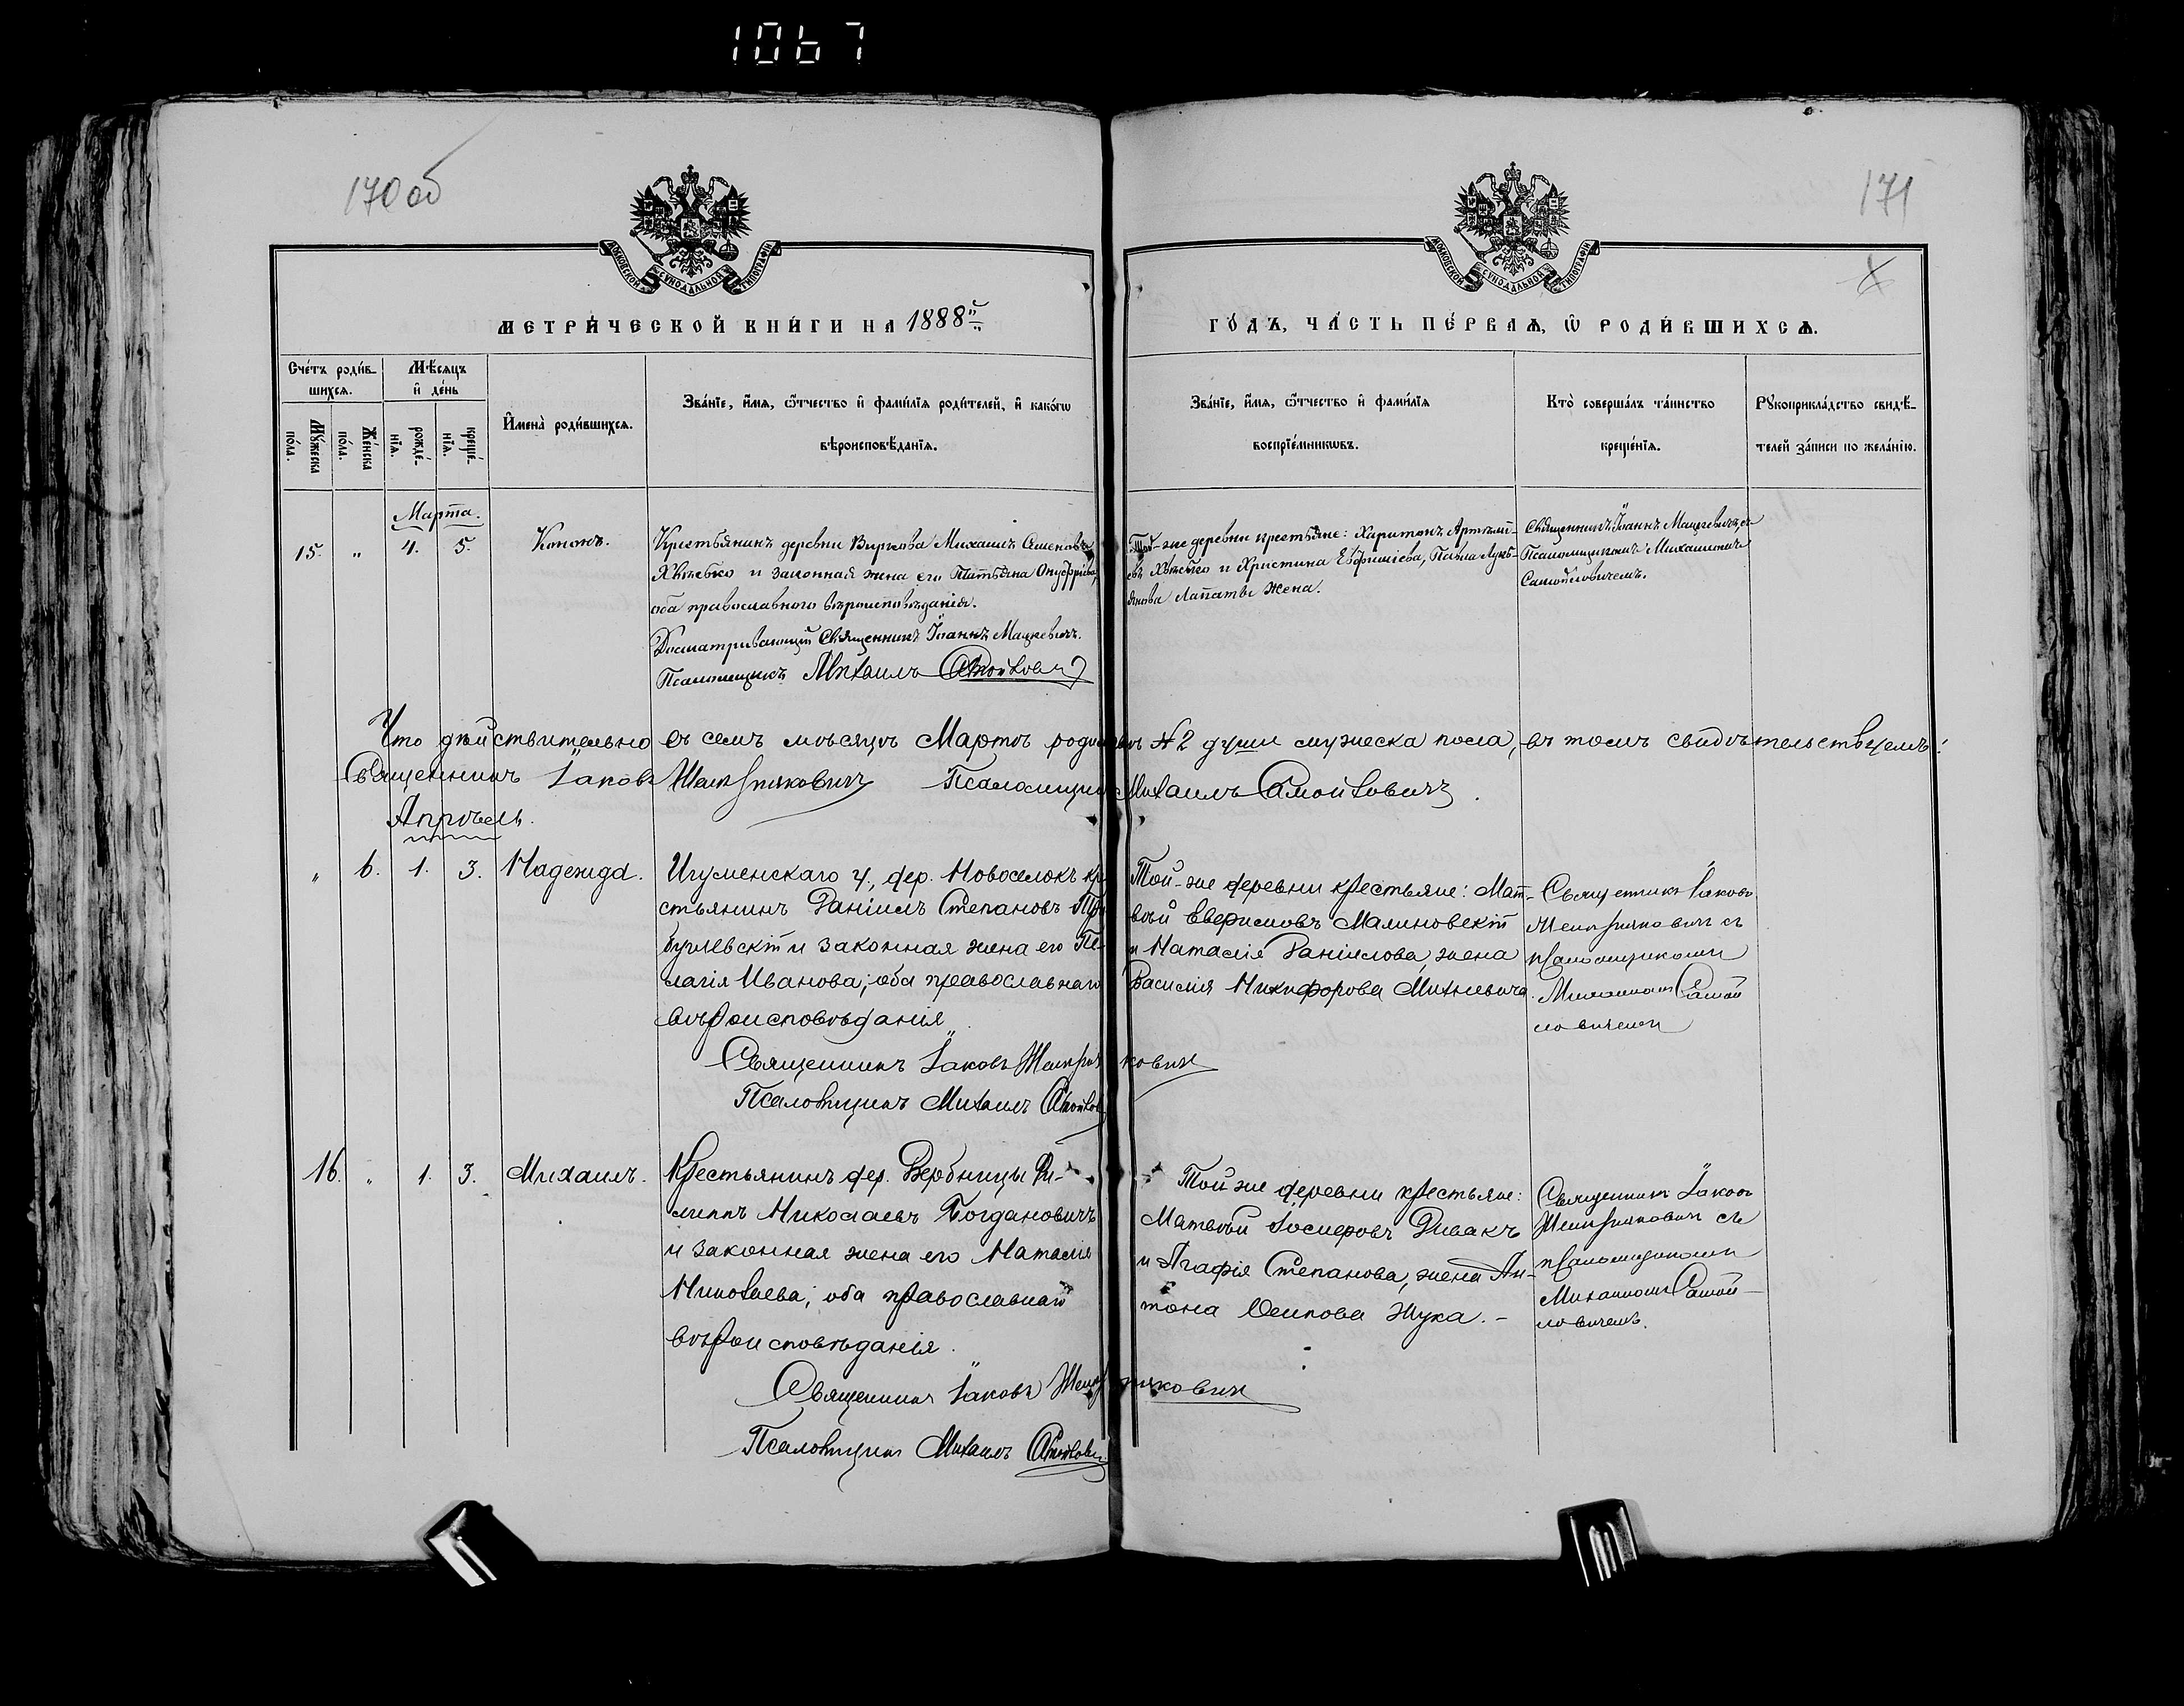 1067
170 об
171
МОСКОВСКОЙ СѴНОДАЛЬНОЙ ТИПОГРАФІИ
МОСКОВСКОЙ СѴНОДАЛЬНОЙ ТИПОГРАФІИ
МЕТРИ́ЧЕСКОЙ КНИ́ГИ НА 1888й
ГО́ДЪ, ЧА́СТЬ ПЕ́РВАѦ, Ѡ РОДИ́ВШИХСѦ.
Счéтъ роди́в-
шихсѧ.
Мѣ́сѧцъ
и҆ дéнь
Мꙋ́жеска
по́ла.
Же́нска
по́ла.
рождé-
нїѧ.
крещé-
нїѧ.
И҆мена̀ роди́вшихсѧ.
Зва́нїе, и҆́мѧ, ѻ҆́тчество и҆ фами́лїѧ роди́телей, и҆ како́гѡ
вѣроисповѣ́данїѧ.
Зва́нїе, и҆́мѧ, ѻ҆́тчество и҆ фами́лїѧ
воспрїéмникѡвъ.
Кто̀ соверша́лъ та́инство
крещéнїѧ.
Рꙋкоприкла́дство свидѣ́-
телей за́писи по жела́нїю.
Марта.
15. " 4. 5. Кононъ.
Крестьянинъ деревни Виркова Михаилъ Семеновъ
и законная жена его Татьяна Онуфріева,
оба православного вѣроисповѣданія.
Священникъ Іоаннъ Мацкевичъ.
Псаломщикъ Михаилъ Самойлович
Той-же деревни крестьяне: Харитонъ Артемі-
евъ и Христина Евфиміева, Павла Лукь-
янова Лапаты жена.
Священникъ Іоаннъ Мацкевичъ, съ
Псаломщикомъ Михаиломъ
Самойловичемъ.
Что дѣйствительно въ семъ мѣсяцѣ Мартѣ родилось № 2 души мужеска пола, въ томъ свидѣтельствуемъ:
Священникъ Іаковъ Псаломщикъ Михаилъ Самойловичъ.
Апрѣль.
" 6. 1. 3. Надежда.
Игуменскаго у., дер. Новоселокъ кре
стьянинъ Даніилъ Степановъ
и законная жена его Пе-
лагія Иванова; оба православнаго
вѣроисповѣданія
Священникъ Іаковъ
Псаломщикъ Михаилъ Самойлов
Той-же деревни крестьяне: Мат-
вѣй Малиновскій
и Наталія Даніилова, жена
Василія Никифорова Михневича.
Священникъ Іаковъ
съ
псаломщикомъ
Михаиломъ Самой
ловичемъ
16. " 1. 3. Михаилъ.
Крестьянинъ дер. Вербницы Фи-
липпъ Николаевъ Богдановичъ
и законная жена его Наталія
Николаева; оба православнаго
вѣроисповѣданія.
Священникъ Іаковъ
Псаломщикъ Михаилъ Самойлович
Той же деревни крестьяне:
Матвѣй Іосифовъ Дивакъ
и Агафія Степанова, жена Ан-
тона Осипова Жука. -
Священникъ Іаковъ
съ
псаломщикомъ
Михаиломъ Самой-
ловичемъ.